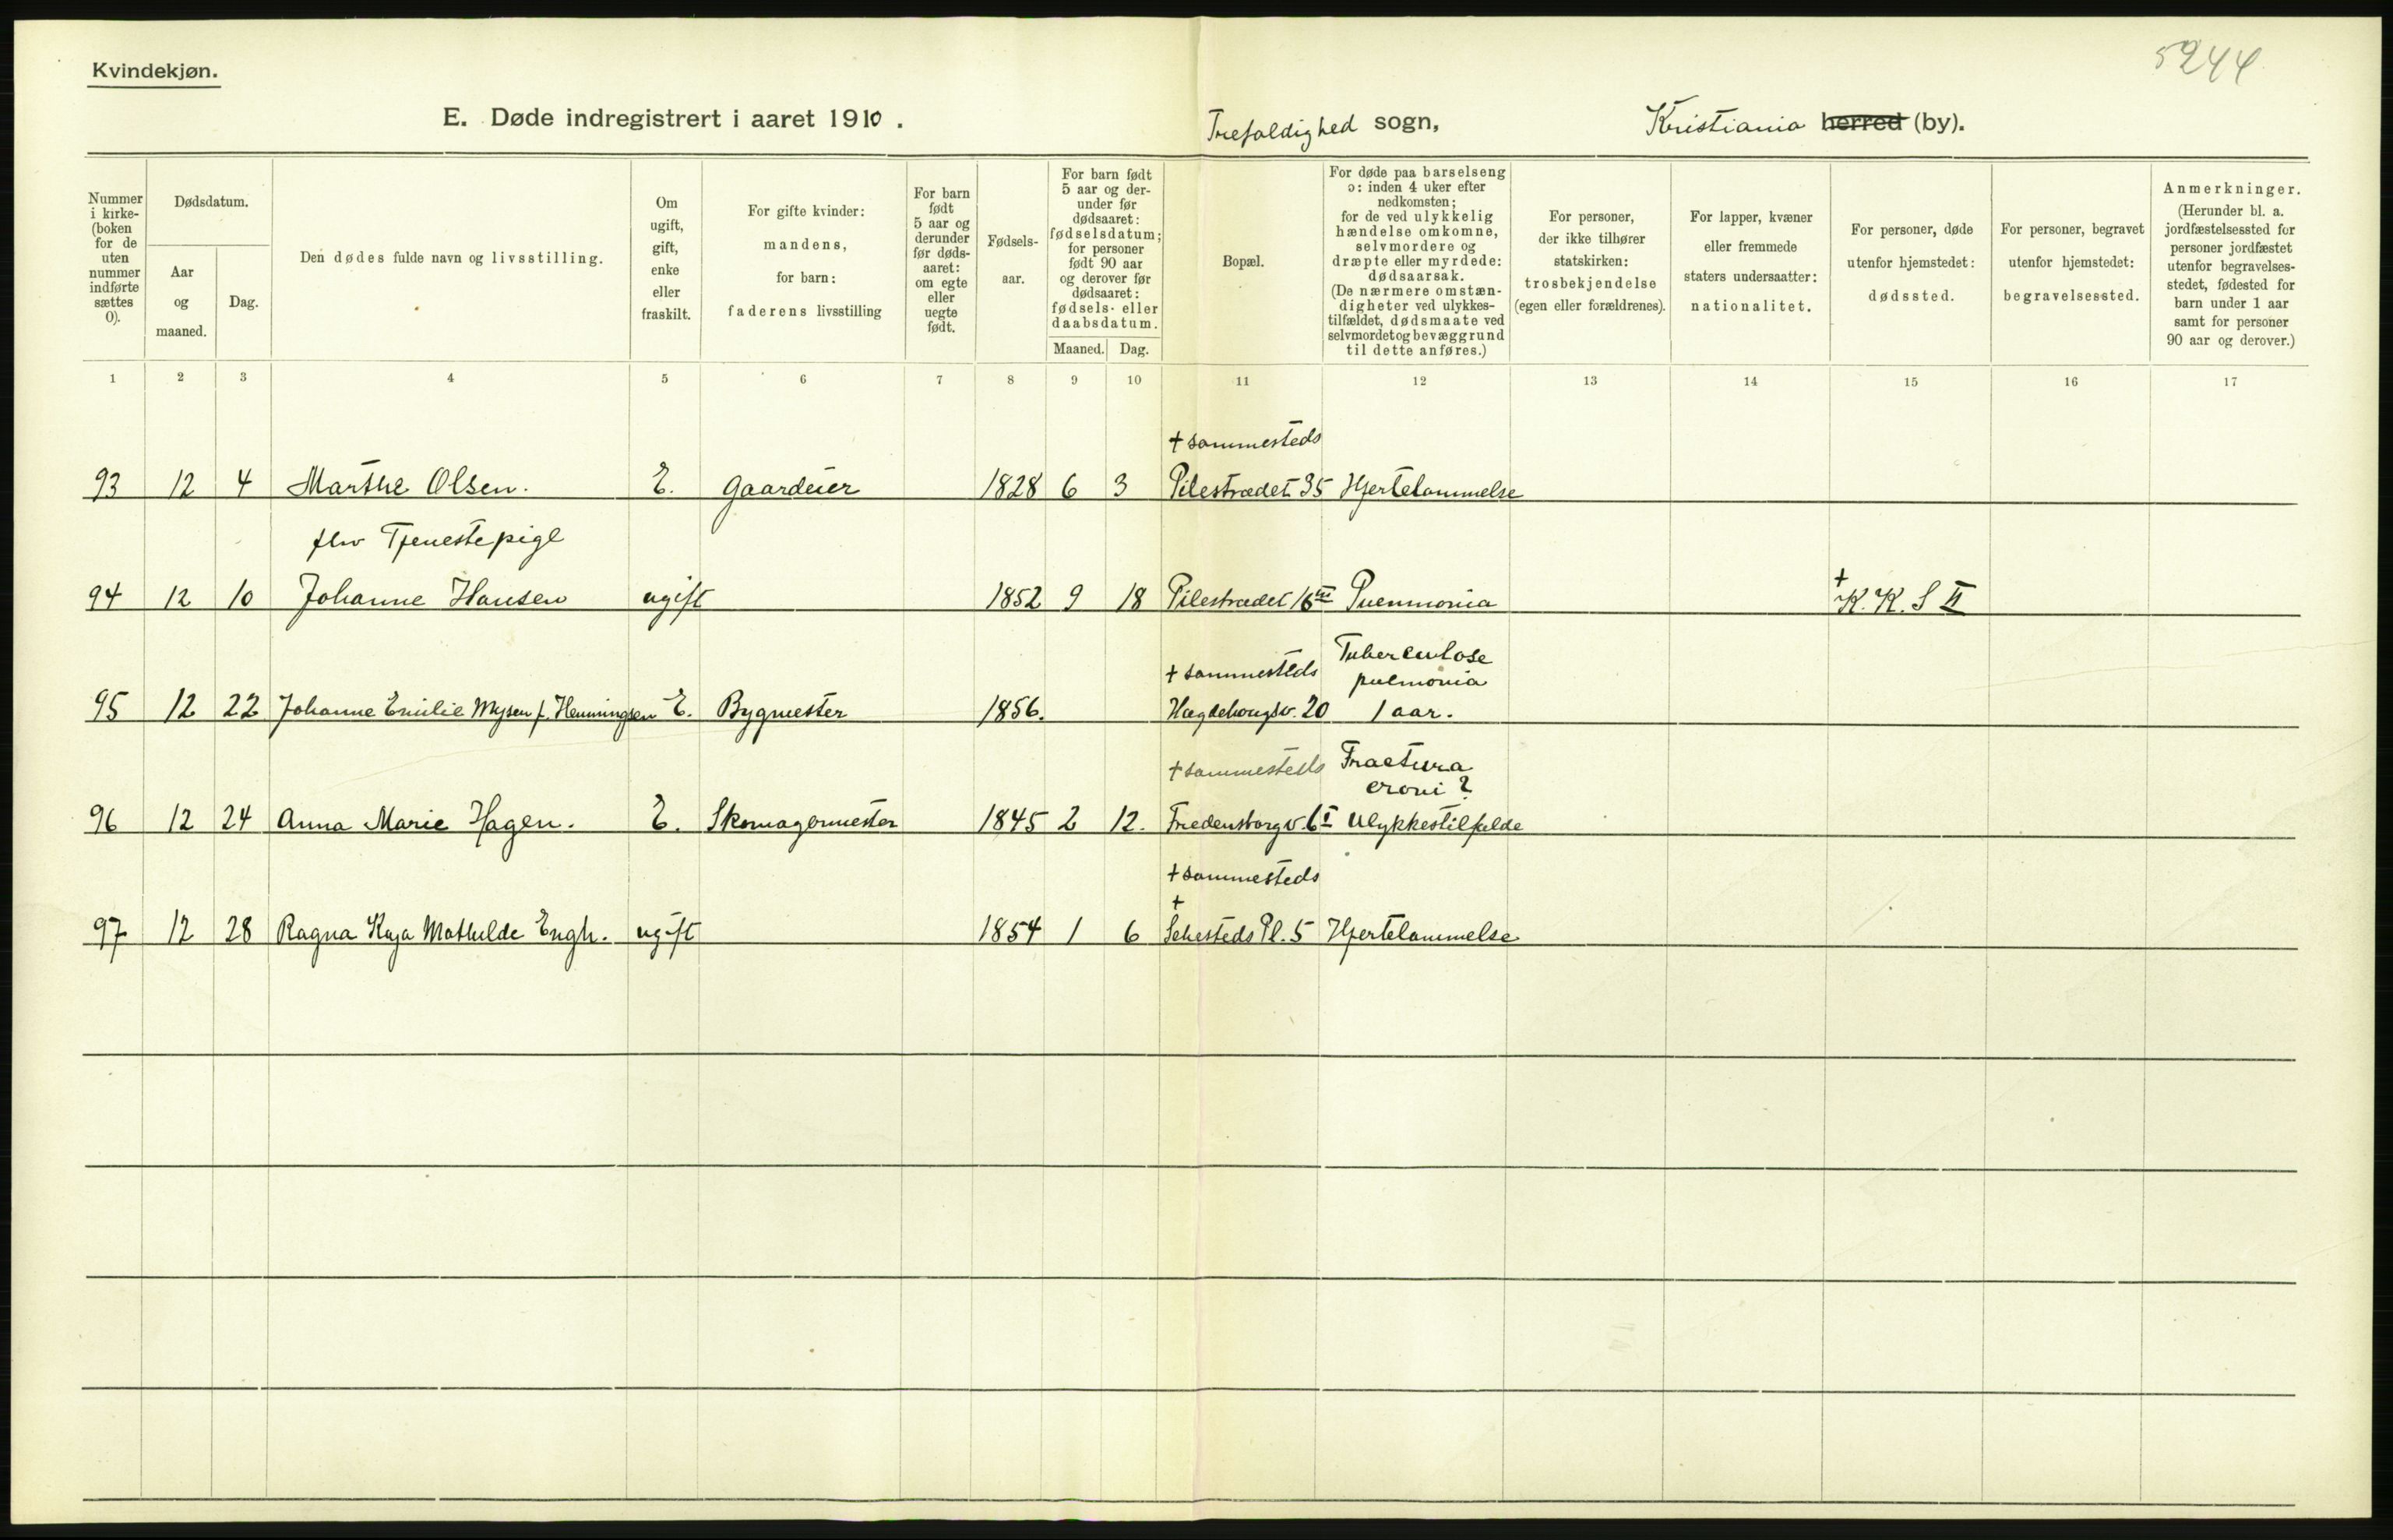 Kvindekjøn.
5244
E. Døde indregistrert i aaret 1910.
Trefoldighed sogn,
Kristiania herred (by).
Nummer i kirke-(boken for de uten nummer indførte sættes 0).
Dødsdatum.
Aar og maaned.
Dag.
Den dødes fulde navn og livsstilling.
Om ugift, gift, enke eller fraskilt.
For gifte kvinder: mandens, for barn: faderens livsstilling
For barn født 5 aar og derunder før døds-aaret: om egte eller uegte født.
Fødsels-aar.
For barn født 5 aar og der-under før dødsaaret: fødselsdatum; for personer født 90 aar og derover før dødsaaret: fødsels- eller daabsdatum.
Maaned.
Dag.
Bopæl.
For døde paa barselseng ɔ: inden 4 uker efter nedkomsten; for de ved ulykkelig hændelse omkomne, selvmordere og dræpte eller myrdede: dødsaarsak. (De nærmere omstæn-digheter ved ulykkes-tilfældet, dødsmaate ved selvmordet og bevæggrund til dette anføres.)
For personer, der ikke tilhører statskirken: trosbekjendelse (egen eller forældrenes).
For lapper, kvæner eller fremmede staters undersaatter: nationalitet.
For personer, døde utenfor hjemstedet: dødssted.
For personer, begravet utenfor hjemstedet: begravelsessted.
Anmerkninger. (Herunder bl. a. jordfæstelsessted for personer jordfæstet utenfor begravelses-stedet, fødested for barn under 1 aar samt for personer 90 aar og derover.)
1 2 3 4 5 6 7 8 9 10 11 12 13 14 15 16 17
+ sammesteds
93 12 4 Marthe Olsen. E. Gaardeier 1828 6 3 Pilestrædet 35 Hjertelammelse
fhv Tjenestepige
94 12 10 Johanne Hansen ugift 1852 9 18 Pilestrædet 16 III Pneumonia + K. K. S II
+ sammesteds Tuberculose
pulmonia
95 12 22 Johanne Emilie Mysen f. Henningsen E. Bygmester 1856. Hægdehougsv. 20 1 aar.
+ sammesteds Fractura
croni ?
96 12 24 Anna Marie Hagen. E. Skomagermester 1845 2 12. Fredensborgv. 6 I Ulykkestilfelde
+ sammesteds
+
97 12 28 Ragna Kaja Mathilde Engh. ugift 1854 1 6 Sehesteds Pl. 5 Hjertelammelse